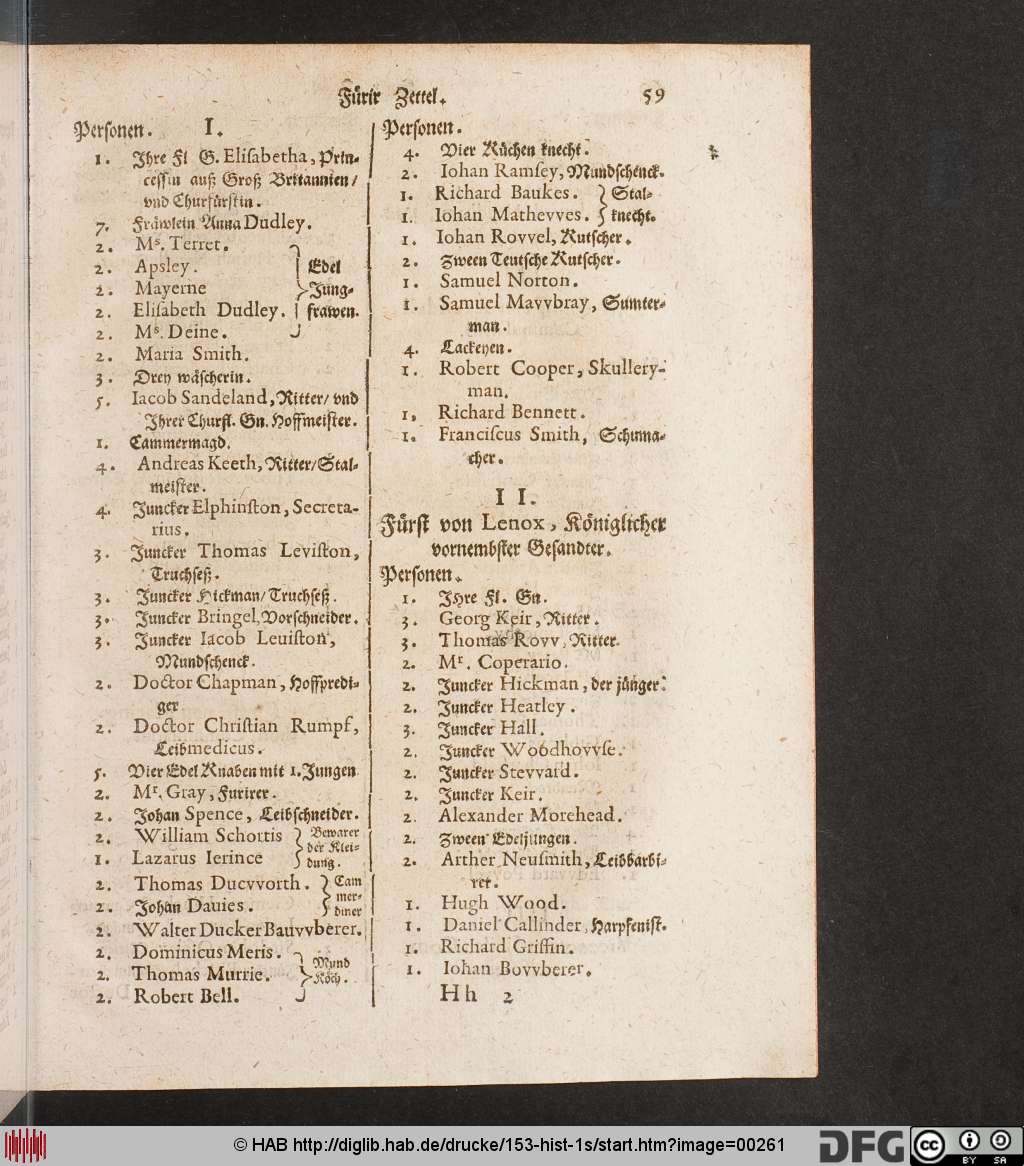 Fürir Zettel.
59
Personen. I.
1. Ihre Fl G. Elisabetha, Prin-
cessin auß Groß Britannien/
vnd Churfürstin.
7. Fräwlein Anna Dudley.
2. Ms. Terret.
2. Apsley. } Edel
2. Mayerne } Jung-
2. Elisabeth Dudley. } frawen.
2. Ms. Deine.
2. Maria Smith.
3. Drey wäscherin.
5. Iacob Sandeland, Ritter/ vnd
Ihrer Churfl. Gn. Hoffmeister.
1. Cammermagd.
4. Andreas Keeth, Ritter/Stal-
meister.
4. Juncker Elphinston, Secreta-
rius.
3. Juncker Thomas Leviston,
Truchseß.
3. Juncker Hickman/ Truchseß.
3. Juncker Bringel, Vorschneider.
3. Juncker Iacob Leuiston,
Mundschenck.
2. Doctor Chapman, Hoffpredi-
ger
2. Doctor Christian Rumpf,
Leibmedicus.
5. Vier Edel Knaben mit 1. Jungen
2. Mr. Gray, Furirer.
2. Johan Spence, Leibschneider.
2. William Schortis } Bewarer
der Klei-
1. Lazarus Ierince } dung.
2. Thomas Ducvvorth. } Cam
mer-
2. Johan Dauies. } diner
2. Walter Ducker Bauvvberer.
2. Dominicus Meris. } Mund
2. Thomas Murrie. } Köch.
2. Robert Bell.
Personen.
4. Vier Küchen knecht.
2. Iohan Ramsey, Mundschenck.
1. Richard Baukes. } Stal-
1. Iohan Mathevves. } knecht.
1. Iohan Rovvel, Kutscher.
2. Zween Teutsche Kutscher.
1. Samuel Norton.
1. Samuel Mavvbray, Sumter-
man.
4. Lackeyen.
1. Robert Cooper, Skullery-
man.
1. Richard Bennett.
1. Franciscus Smith, Schuma-
cher.
II.
Fürst von Lenox, Königlicher
vornembster Gesandter.
Personen.
1. Ihre Fl. Gn.
3. Georg Keir, Ritter.
3. Thomas Rovv, Ritter.
2. Mr. Coperario.
2. Juncker Hickman, der jünger.
2. Juncker Heatley.
3. Juncker Hall.
2. Juncker Woodhovvse.
2. Juncker Stevvard.
2. Juncker Keir.
2. Alexander Morehead.
2. Zween Edeljungen.
2. Arther Neusmith, Leibbarbi-
rer.
1. Hugh Wood.
1. Daniel Callinder, Harpfenist.
1. Richard Griffin.
1. Iohan Bovvberer.
Hh 2
© HAB http://diglib.hab.de/drucke/153-hist-1s/start.htm?image=00261
DFG
cc BY SA